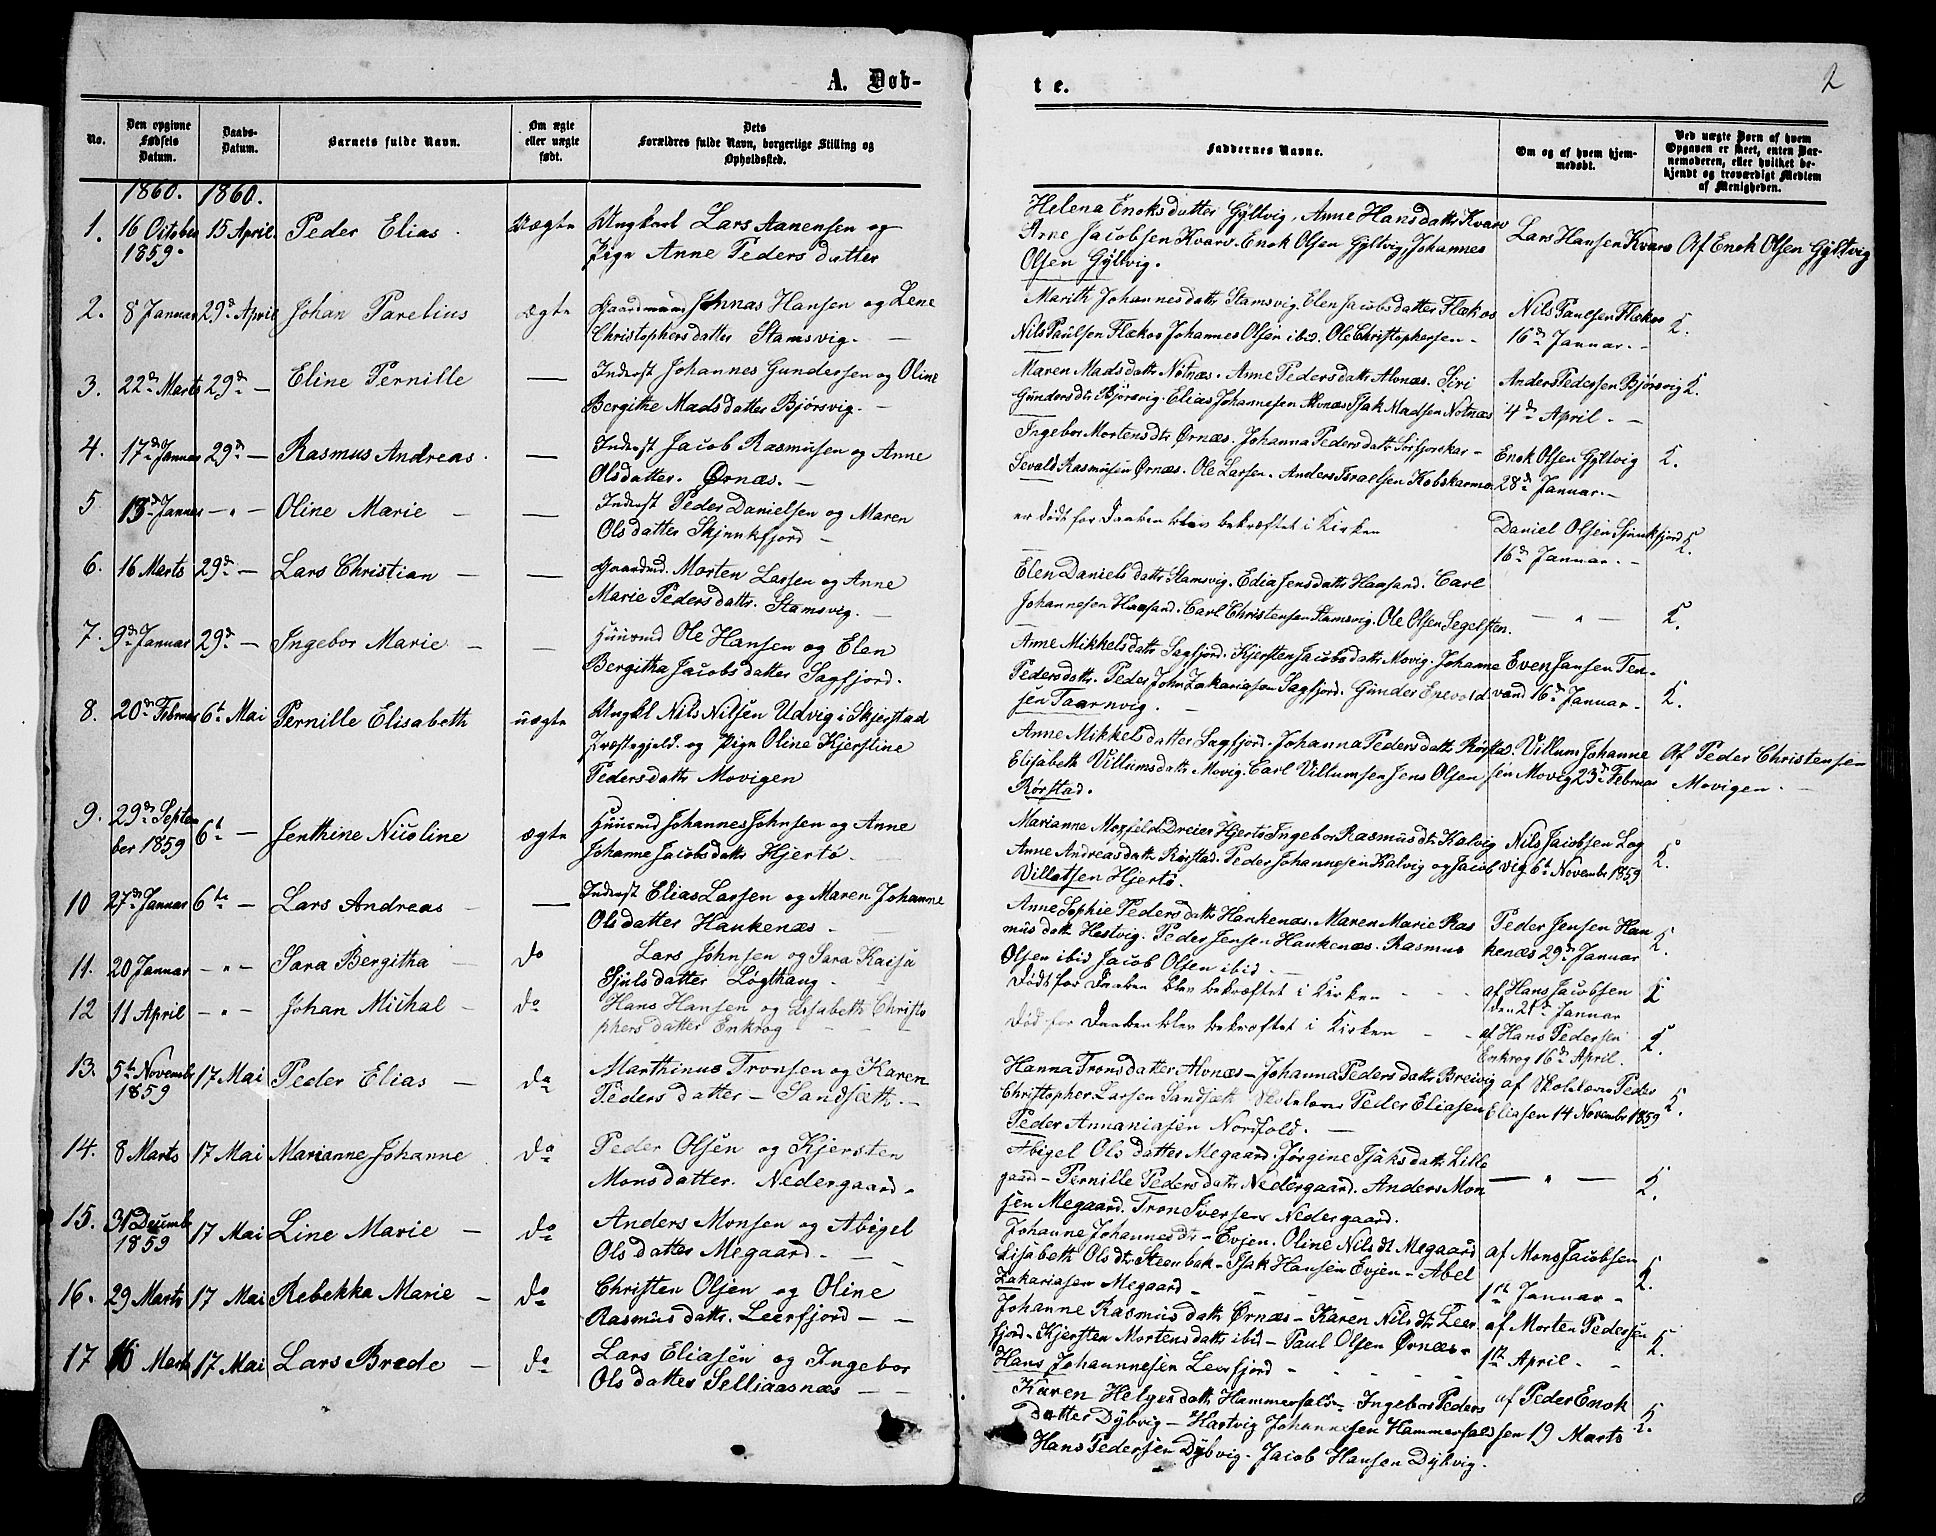 A. Døb-
t e.
2
No.
Den opgivne Fødsels Datum.
Daabs-Datum.
Barnets fulde Navn.
Om ægte eller uægte født.
Dets Forældres fulde Navn, borgerlige Stilling og Opholdssted.
Faddernes Navne.
Om og af hvem hjemmedøbt.
Ved uægte Børn af hvem Opgaven er skeet, enten Barnemoderen, eller hvilket bekjendt og troværdigt Medlem af Menigheden.
1860. 1860.
1. 16 October 15 April. Peder Elias. Uægte Ungkarl Lars Aanensen og
1859. Pige Anne Pedersdatter
Helena Enoksdatter Gyltvig. Anne Hansdattr Kvarv
Arne Jacobsen Kvarv. Enok Olsen Gyltvig, Johannes Lars Hansen Kvarv Af Enok Olsen Gyltvig
Olsen Gyltvig.
2. 8 Januar 29de April Johan Parelius ægte Gaardmand Jonas Hansen og Lene
Christophersdatter Stamsvig. —
Marith Johannesdattr Stamsvig. Elen Jacobsdatter Flækos Nils Paulsen Flækos
Nils Paulsen Flækos Johannes Olsen ibid. Ole Christophersen - 16de Januar. - 2.
3. 22de Marts 29de — Eline Pernille — Inderst Johannes Gundersen og Oline
Bergithe Madsdatter Bjørsvig. —
Maren Madsdattr Nøtnæs. Anne Pedersdattr Alvnæs. Siri Anders Pedersen Bjørsvig 2.
Gundersdtr Bjørsvig. Elias Johannesen Alvnæs Isak Madsen Nøtnæs 4de April. -
4. 17de Januar 29de — Rasmus Andreas. — Inderst Jacob Rasmusen og Anne
Olsdatter. Ørnæs. —
Ingebor Mortensdtr Ørnæs. Johanna Pedersdattr Enok Olsen Gyltvig 2.
Sevald Rasmusen Ørnæs. Ole Larsen. Anders Israelsen Kobskarmo. 28de Januar. -
5 13de Januar — " — Oline Marie — — Inderst Peder Danielsen og Maren
Olsdatter Skjunkfjord —
er dødt før Daaben blev bekræftet i Kirken Daniel Olsen Sjunkfjord 2.
16de Januar. -
6. 16 Marts 29de — Lars Christian — — Gaardmd. Morten Larsen og Anne
Marie Pedersdattr. Stamsvig. —
Elen Danielsdattr Stamsvig. Edia Jensdattr Haasand. Carl
Johannesen Haasand. Carl Christensen Stamsvig. Ole Olsen Segelsten. — " — 2.
7. 9de Januar 29de — Ingebor Marie — — Huusmd Ole Hansen og Elen
Bergitha Jacobsdatter Sagfjord.
Anne Mikkelsdattr Sagfjord. Kjersten Jacobsdattr Movig. Johanne Even Jansen Ten-
Pedersdattr. Peder John Zakariasen Sagfjord. Gunder Enevold vand 16de Januar. 2.
sen Taarnvig. —
8. 20de Februar 6te Mai Pernille Elisabeth uægte Ungkl Nils Nilsen Udvig i Skjerstad
Præstegjeld. og Pige Oline Kjerstine
Pedersdattr Movigen
Anne Mikkelsdatter Sagfjord. Johanna Pedersdattr Rørstad. Villum Johanne Af Peder Christensen
Elisabeth Villumsdattr Movig. Carl Villumsen Jens Olsen sen Movig 23de Februar Movigen. —
Rørstad.
9. 29de Septem
ber 1859 6te — Jenthine Nicoline ægte Huusmd Johannes Johnsen og Anne
Johanne Jacobsdattr Hjertø. —
Marianne Dreier Hjertø Ingebor Rasmusdtr Kalvig Nils Jacobsen Log
Anne Andreasdattr Rørstad. Peder Johannesen Kalvig og Jacob vig 6te Novembr 1859 2.
Villatsen Hjertø.
10 27de Januar 6te — Lars Andreas — — Inderst Elias Larsen og Maren Johanne
Olsdatter Haukenæs. —
Anne Sophie Pedersdattr Haukenæs. Maren Marie Ras Peder Jensen Hau
musdattr Hestvig. Peder Jensen Haukenæs. Rasmus kenæs 29de Januar 2.
Olsen ibid Jacob Olsen ibid. —
11. 20 Januar — " — Sara Bergitha — do Lars Johnsen og Sara Kaisa
Sjulsdatter Løgthaug —
Dødt før Daaben blev bekræftet i Kirken - - af Hans Jacobsen 2
den 21de Januar
12 11 April — " — Johan Michal — do Hans Hansen og Lisabeth Christo
phersdatter Enkrog —
Død før Daaben blev bekræftet i Kirken - af Hans Pedersen
Enkrog 16de April. 2.
13. 5te Novembr
1859 17 Mai Peder Elias — do Marthinus Tronsen og Karen
Pedersdatter — Sandsæth. —
Hanna Tronsdatter Alvnæs — Johanna Pedersdattr Breivig af Skolelærer Peder
Christopher Larsen Sandsæth Skolelærer Peder Eliasen Eliasen 14 Novembr 1859 2.
Peder Annaniasen Nordfold. —
14. 8 Marts 17 Mai Marianne Johanne do Peder Olsen og Kjersten
Monsdatter. Nedergaard.
Abigel Olsdatter Megaard. Jørgine Isaksdattr Lille
gaard — Pernille Pedersdattr Nedergaard. Anders Mon — " — 2.
sen Megaard. Tron Iversen Nedergaard.
15. 31 Decembr
1859 17 Mai Line Marie — do Anders Monsen og Abigel
Olsdatter Megaard. —
Johanne Johannesdtr — Evjen. Oline Nilsdtr Megaard af Mons Jacobsen
Lisabeth Olsdtr Steenbak — Isak Hansen Evjen — Abel 2.
Zakariasen Megaard — 1ste Januar -
16. 29 Marts 17 Mai Rebekka Marie — do Christen Olsen og Oline
Rasmusdattr. Leerfjord — —
Johanne Rasmusdattr Ørnæs — Karen Nilsdtr Leer af Morten Pedersen
fjord — Kjersten Mortensdattr ibid — Paul Olsen Ørnæs - 1ste April - 2.
Hans Johannnesen Leerfjord - - - -
17 16 Marts 17 Mai Lars Brede — do Lars Eliasen og Ingebor
Olsdatter Selliaasnæs — —
Karen Helgesdattr Hammerfald — Ingebor Peders af Peder Enok
datter Dybvig — Hartvig Johannesen Hammerfald sen 19 Marts 2.
Hans Pedersen Dybvig. Jacob Hansen Dybvig.